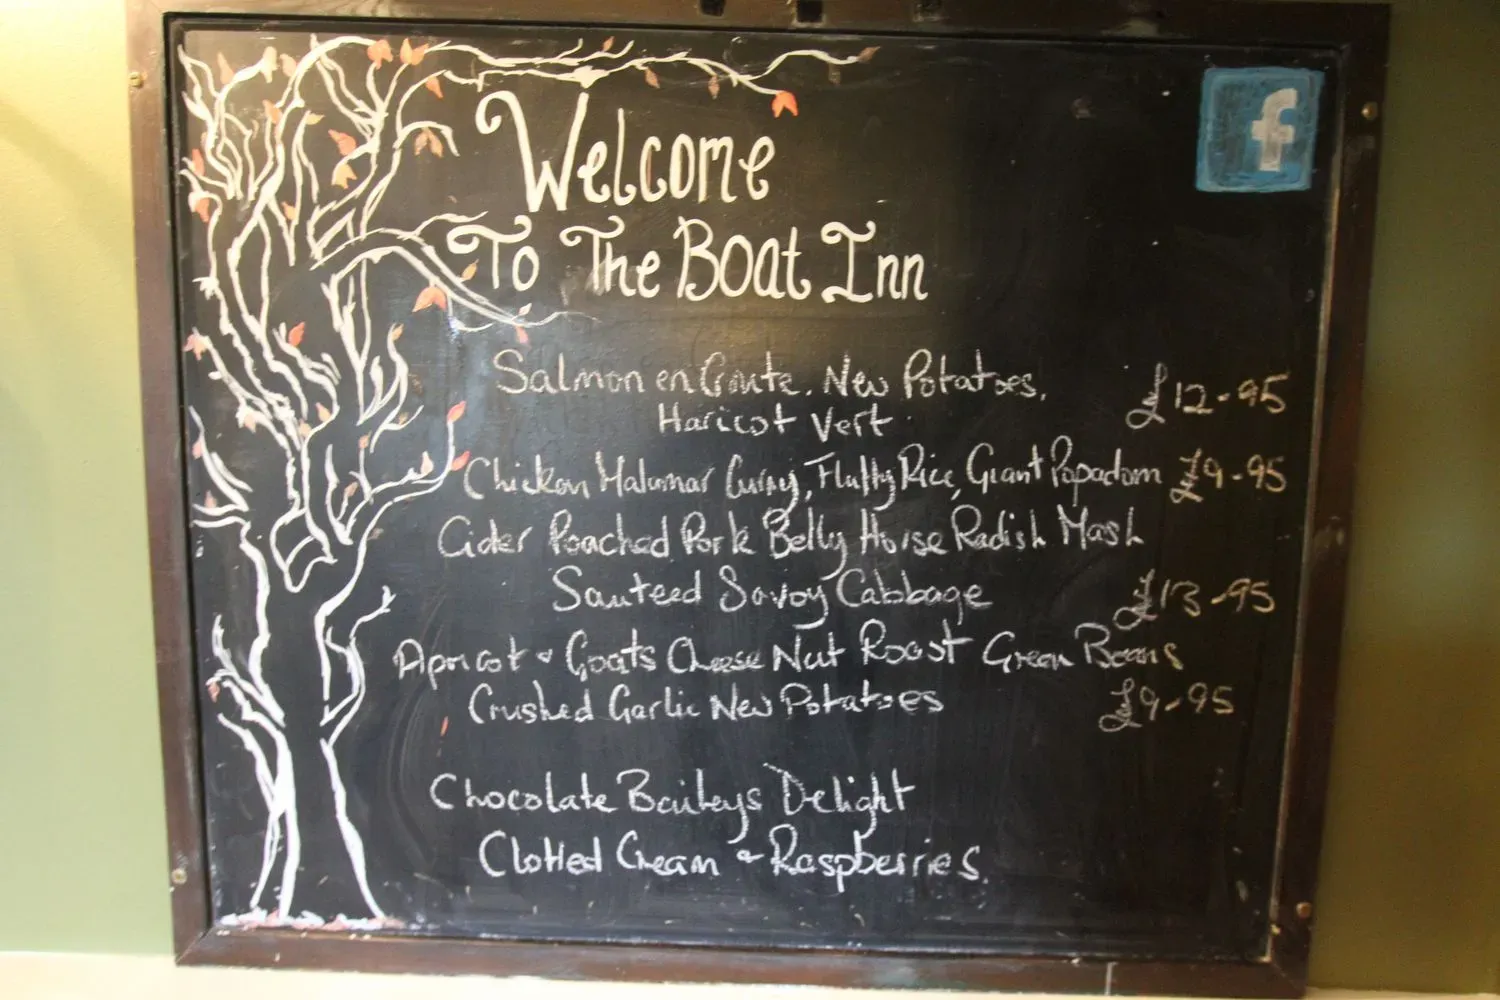 f
Welcome
To The Boat Inn
Salmon en Croute. New Potatoes.
Haricot Vert £12-95
Chicken Malumar Curry, Fluffy Rice, Giant Papadom £9-95
Cider Poached Pork Belly Horse Radish Mash
Sauteed Savoy Cabbage £13-95
Apricot & Goats Cheese Nut Roast Green Beans
Crushed Garlic New Potatoes £9-95
Chocolate Baileys Delight
Clotted Cream & Raspberries.